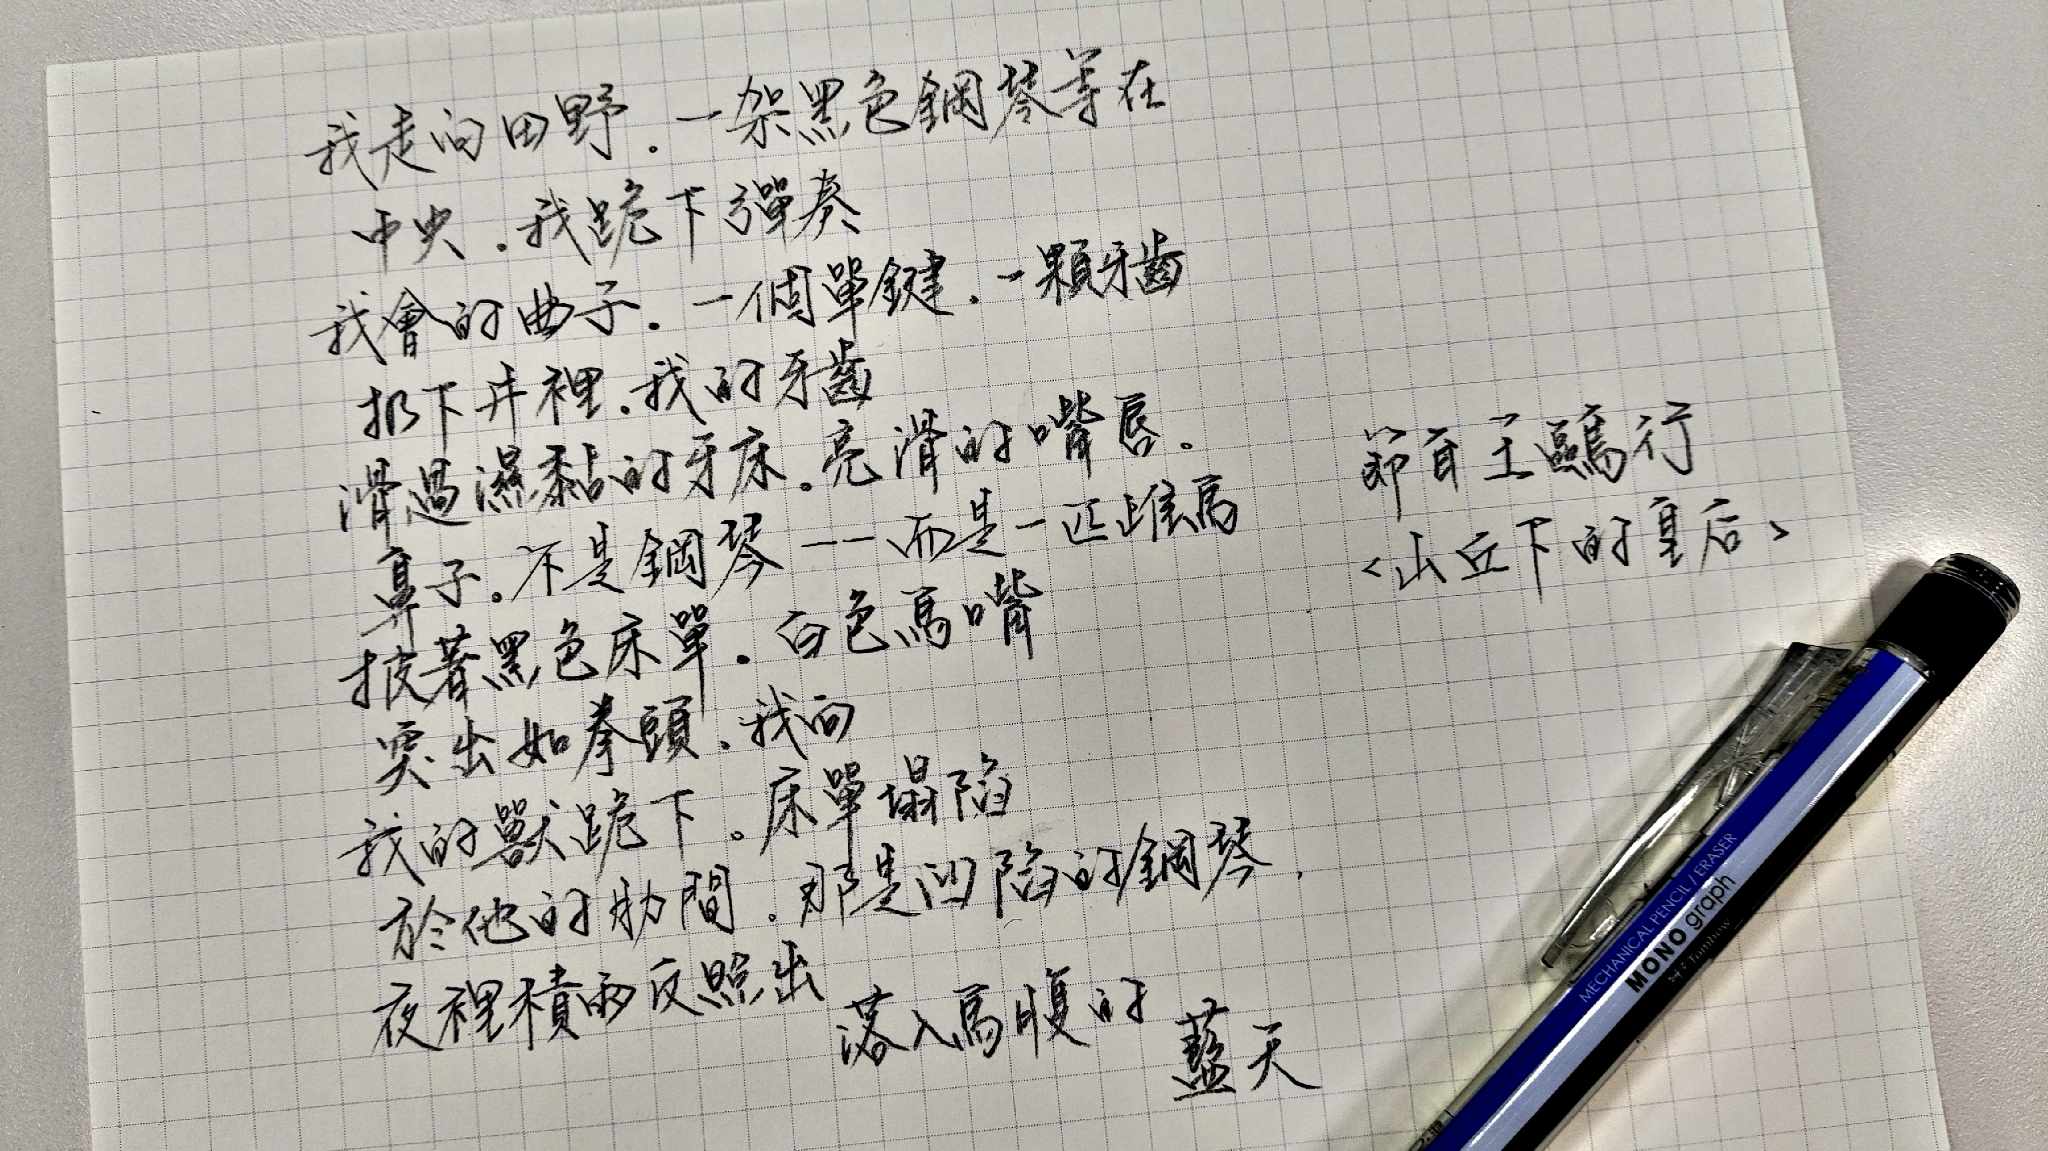 我走向田野.一架黑色鋼琴等在
中央.我跪下彈奏
我會的曲子.一個單鍵.一顆牙齒
扔下井裡.我的牙齒
滑過濕黏的牙床.亮滑的嘴唇.
鼻子.不是鋼琴——而是一匹雌馬
披著黑色床單.白色馬嘴
突出如拳頭.我向
我的獸跪下.床單塌陷
於他的肋間.那是凹陷的鋼琴.
夜裡積雨反照出
落入馬腹的
藍天
節自王鷗行
<山丘下的皇后>
MECHANICAL PENCIL / ERASER
MONO graph
Tombow